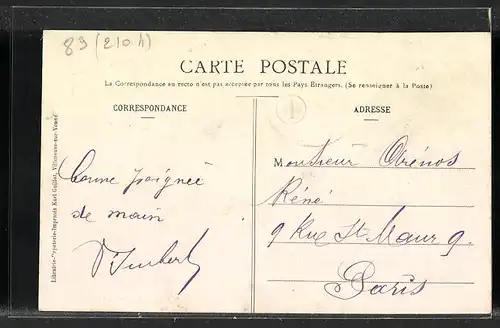 89 (210 h)
CARTE POSTALE
La Correspondance au recto n'est pas acceptée par tous les Pays Etrangers. (Se renseigner à la Poste)
CORRESPONDANCE
ADRESSE
Librairie-Papeterie-Imprimée Karl Guillot, Villeneuve-sur-Yonne
Bonne poignée
de main
Imbert
Monsieur
René
9 Rue St Maur 9.
Paris